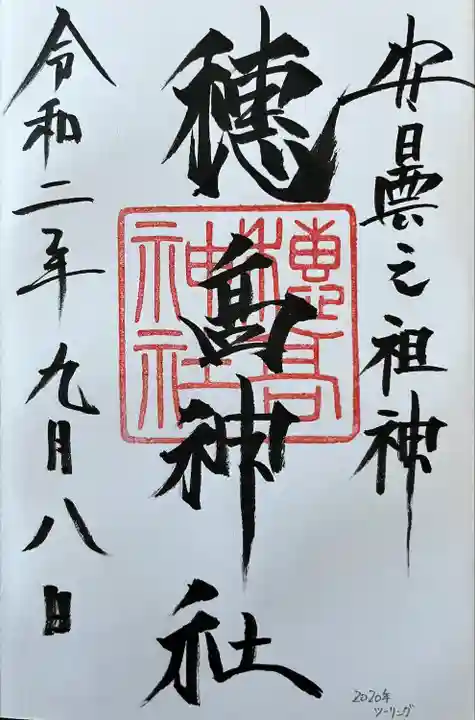 安曇之祖神
穂髙神社
穂高
神社
令和二年九月八日
2020年
ツーリング